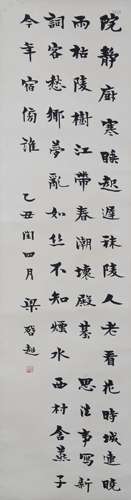 院靜廚寒睡起遲秣陵人老看花時城連曉
雨枯陵樹江帶春潮壞殿基思往事寫新
詞客愁鄉夢亂如絲不知煙水西村舍燕子
今年宿傍誰 乙丑閏四月 梁啟超